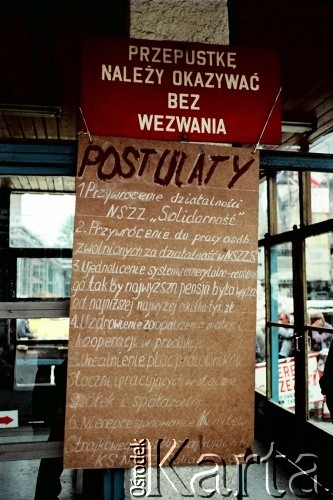 PRZEPUSTKĘ
NALEŻY OKAZYWAĆ
BEZ
WEZWANIA
POSTULATY
1. Przywrócenie działalności
NSZZ „Solidarność"
2. Przywrócenie do pracy osób
zwolnionych za działalność w NSZZ S
3. Ujednolicenie systemu emerytalno-rento
go tak by najwyższa pensja była wyższa
od najniższej najwyżej o kilka tyś. zł.
4. Uzdrowienie zaopatrzenia mater. i
kooperacji w produkcji
5. Urealnienie płac pracowników
stoczni i pracujących w stoczni
spółek i spółdzielni
6. Nierepresjonowanie
Strajkowego
KS N
Ośrodek
Karta